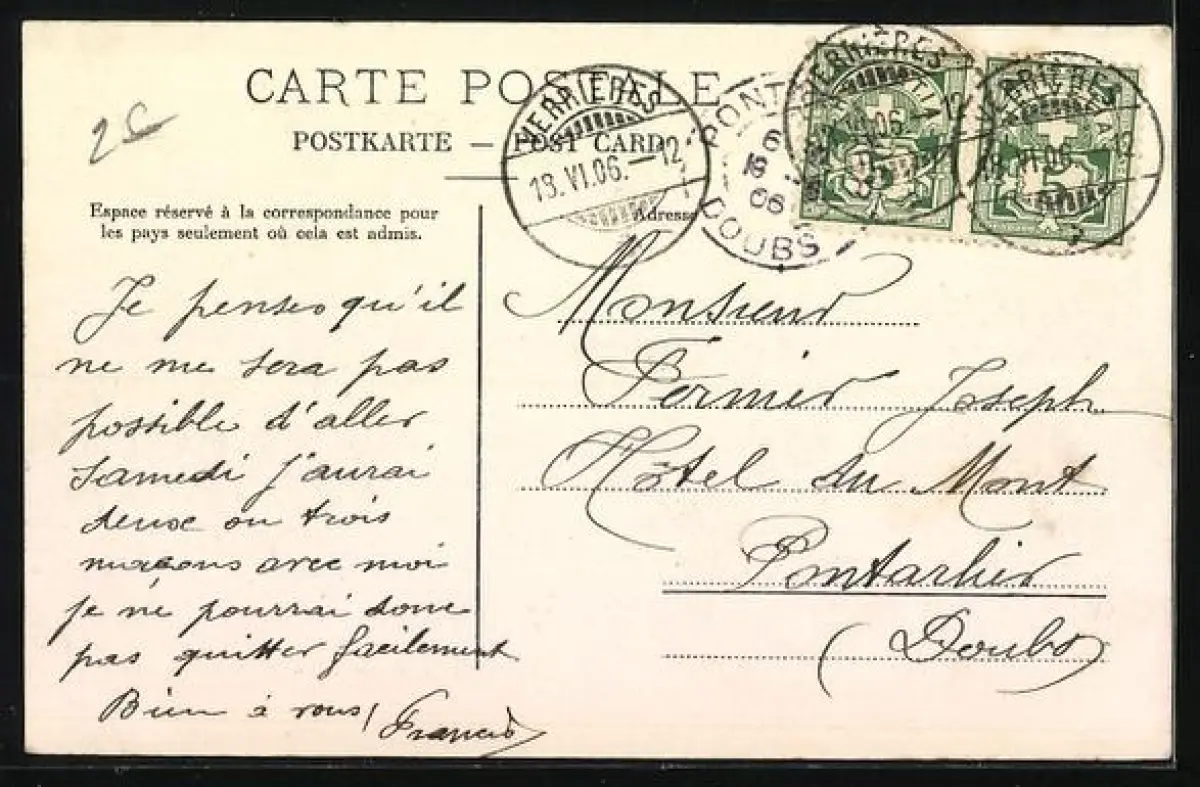 CARTE POSTALE
POSTKARTE — POST CARD
Espace réservé à la correspondance pour
les pays seulement où cela est admis.
Adresse
25
VERRIÈRES
18.VI.06.–12
PONT
6
18
06
DOUBS
VERRIÈRES
VI.06
12
5
VERRIÈRES
18.VI.06
12
5
Je penses qu'il
ne me sera pas
possible d'aller
Samedi j'aurai
deux ou trois
maçons avec moi
je ne pourrai donc
pas quitter facilement
Bien à vous!
Francis
Monsieur
Fernier Joseph
Hôtel du Mont
Pontarlier
(Doubs)